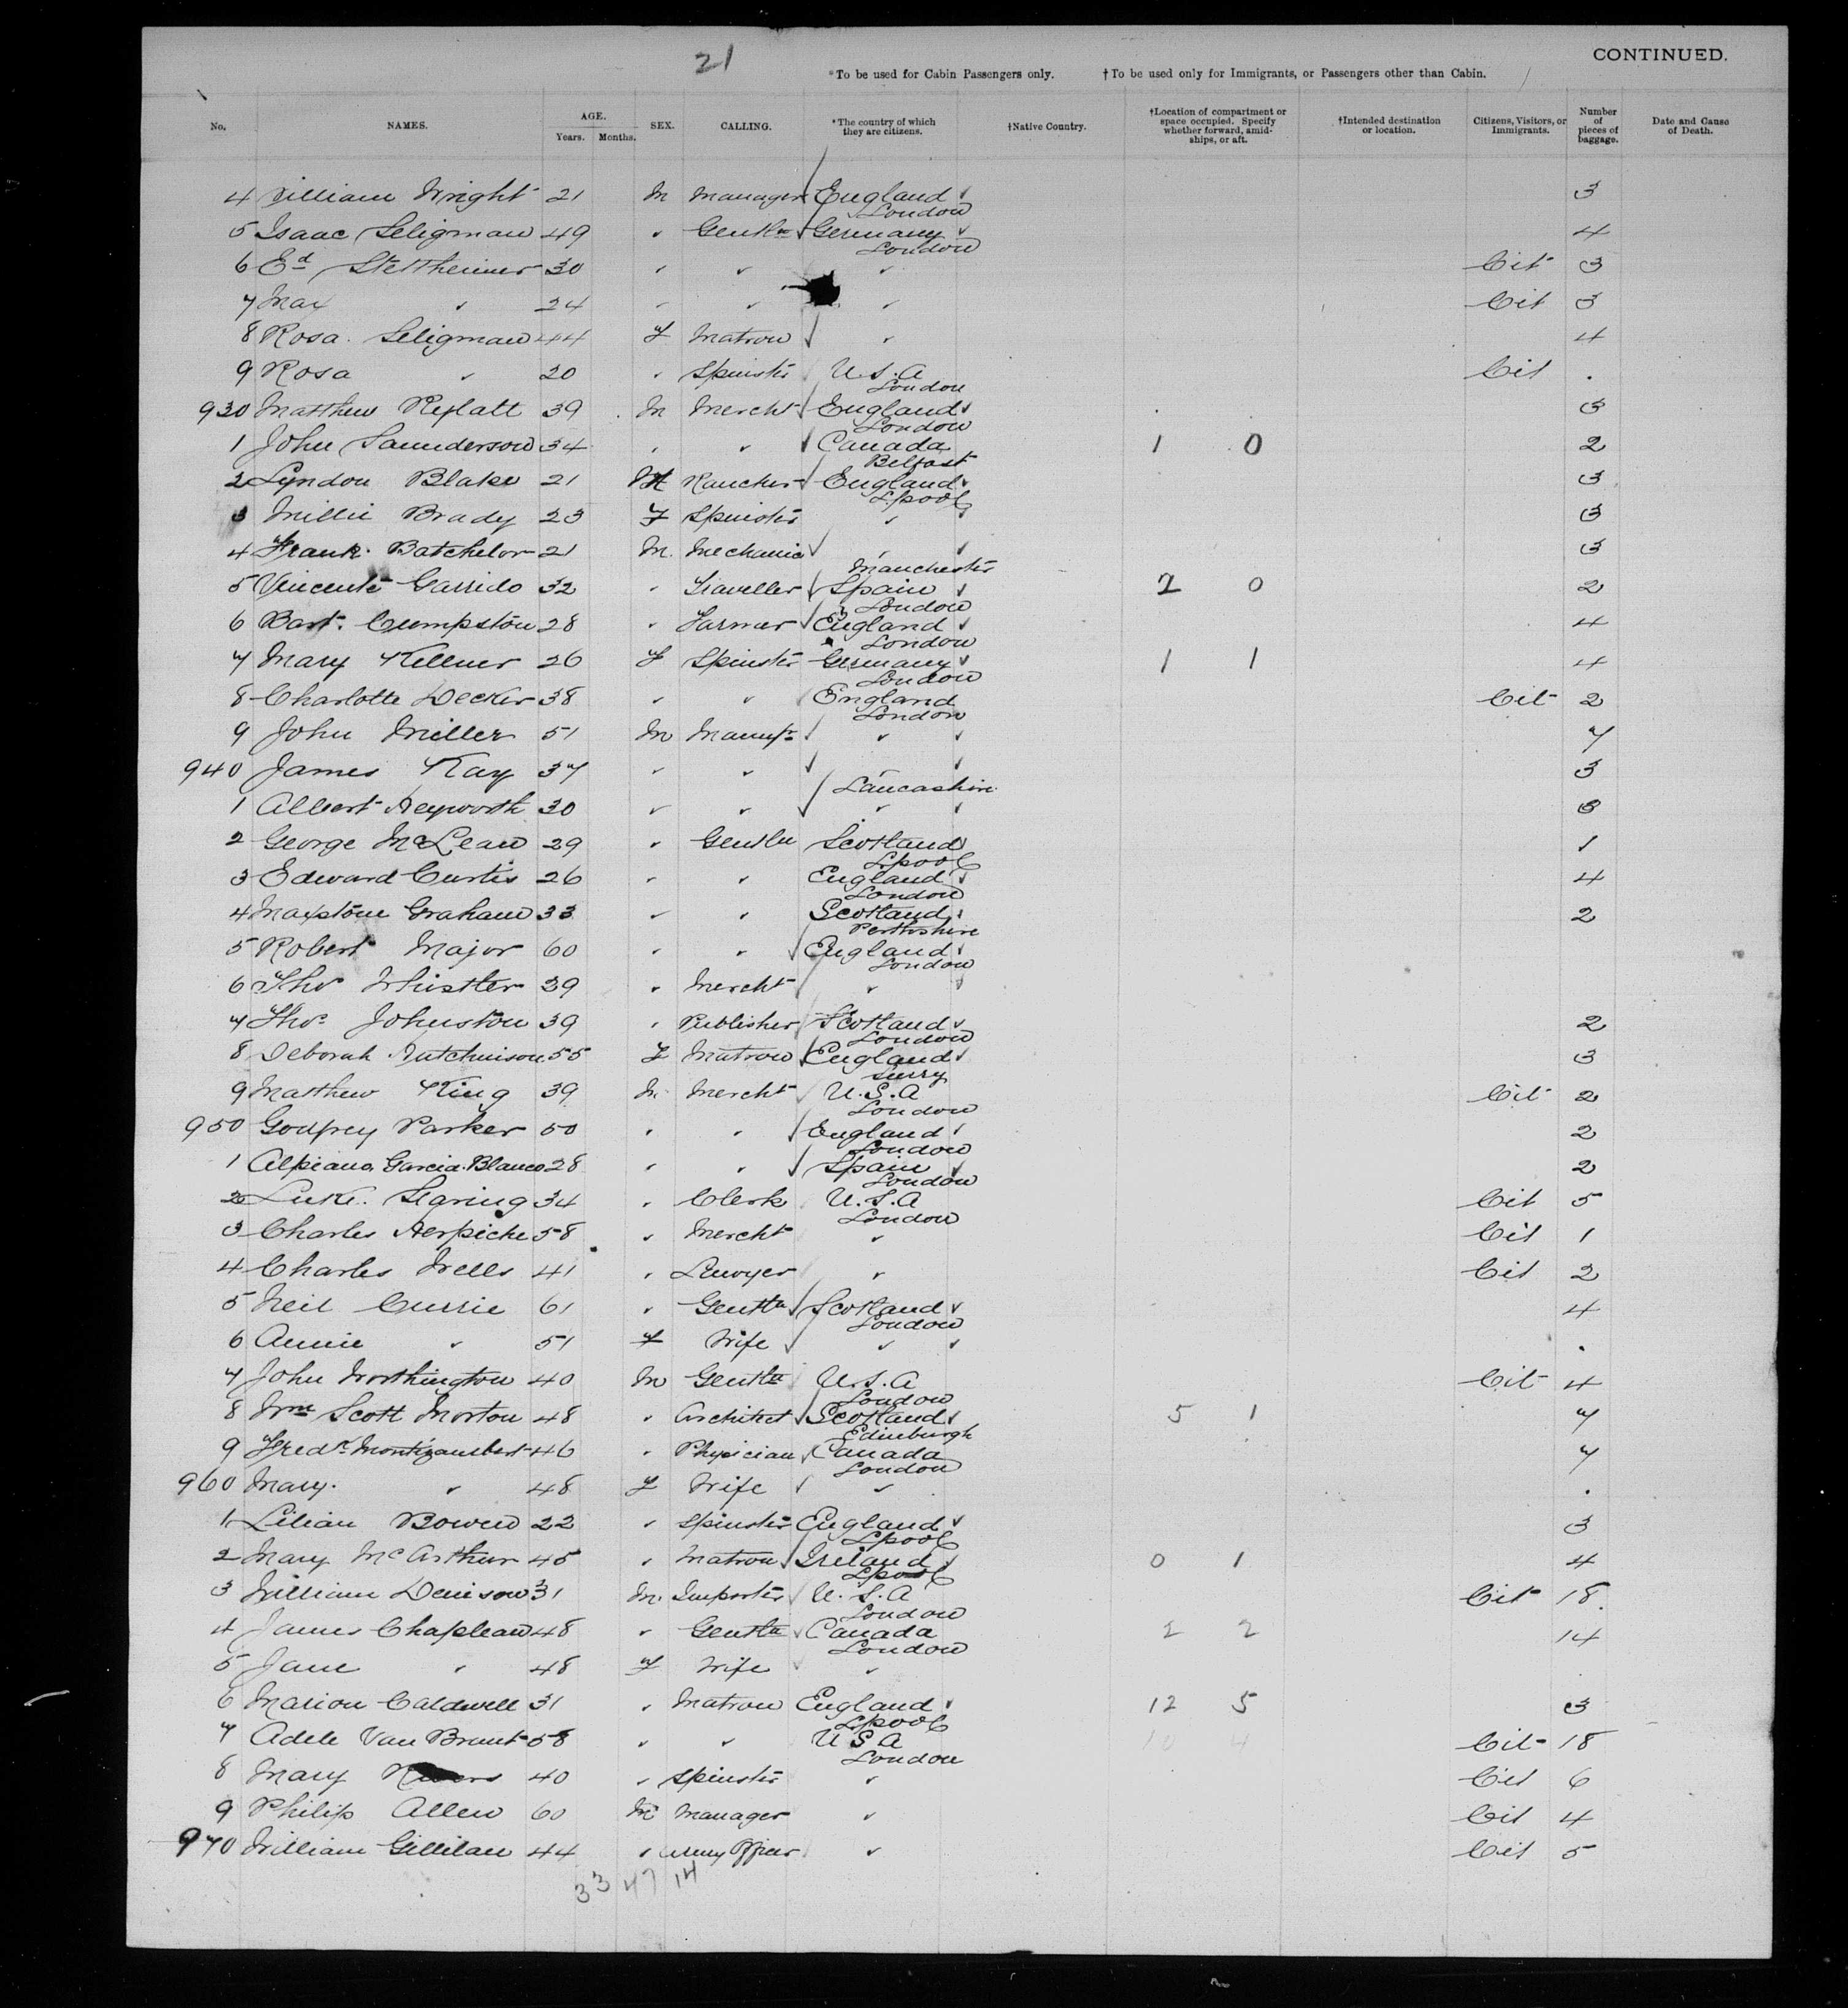 21
CONTINUED.
*To be used for Cabin Passengers only. †To be used only for Immigrants, or Passengers other than Cabin.
No. NAMES. AGE. Years. Months. SEX. CALLING. *The country of which they are citizens. †Native Country. †Location of compartment or space occupied. Specify whether forward, amid-ships, or aft. †Intended destination or location. Citizens, Visitors, or Immigrants. Number of pieces of baggage. Date and Cause of Death.
4 William Wright 21 M Manager England 3
London
5 Isaac Seligman 49 " Gentln Germany 4
London
6 Ed Stettheimer 30 " " " Cit 3
7 Max " 24 " " " Cit 3
8 Rosa Seligman 44 F Matron " 4
9 Rosa " 20 " Spinster U.S.A Cit .
London
930 Matthew Rylatt 39 M Mercht England 3
London
1 John Saunderson 34 " " Canada 1 0 2
Belfast
2 Lyndon Blake 21 M Rancher England 3
Lpool
3 Millie Brady 23 F Spinster " 3
4 Frank Batchelor 21 M. Mechanic " 3
Manchester
5 Vincente Garrido 32 " Traveller Spain 2 0 2
London
6 Bart. Cumpston 28 " Farmer England 4
London
7 Mary Kellner 26 F Spinster Germany 1 1 4
London
8 Charlotte Decker 38 " " England Cit 2
London
9 John Miller 51 M Manufr " 7
940 James Kay 37 " " " 3
Lancashire
1 Albert Heyworth 30 " " " 3
2 George McLean 29 " Gentln Scotland 1
Lpool
3 Edward Curtis 26 " " England 4
London
4 Maxstone Graham 33 " " Scotland 2
Perthshire
5 Robert Major 60 " " England
London
6 Tho Whistler 39 " Mercht "
7 Thos Johnston 39 " Publisher Scotland 2
London
8 Deborah Hutchinson 55 F Matron England 3
Surry
9 Matthew King 39 M. Mercht U.S.A Cit 2
London
950 Godfrey Parker 50 " " England 2
London
1 Alpiano Garcia Blanco 28 " " Spain 2
London
2 Luke Searing 34 " Clerk U.S.A Cit 5
London
3 Charles Herpiche 58 " Mercht " Cit 1
4 Charles Wells 41 " Lawyer " Cit 2
5 Neil Currie 61 " Gentln Scotland 4
London
6 Annie " 51 F Wife " .
7 John Worthington 40 M Gentln U.S.A Cit 4
London
8 Wm Scott Morton 48 " Architect Scotland 5 1 7
Edinburgh
9 Fredk Montizambert 46 " Physician Canada 7
London
960 Mary. " 48 F Wife " .
1 Lilian Bowen 22 " Spinster England 3
Lpool
2 Mary McArthur 45 " Matron Ireland 0 1 4
Lpool
3 William Denison 31 M. Importer U.S.A Cit 18
London
4 James Chapleau 48 " Gentln Canada 2 2 14
London
5 Jane " 48 F Wife "
6 Marion Caldwell 31 " Matron England 12 5 3
Lpool
7 Adele Van Brunt 58 " " U S A 10 4 Cit 18
London
8 Mary 40 " Spinster " Cit 6
9 Philip Allen 60 M Manager " Cit 4
970 William Gillilan 44 " Army Officer " Cit 5
33 47 14